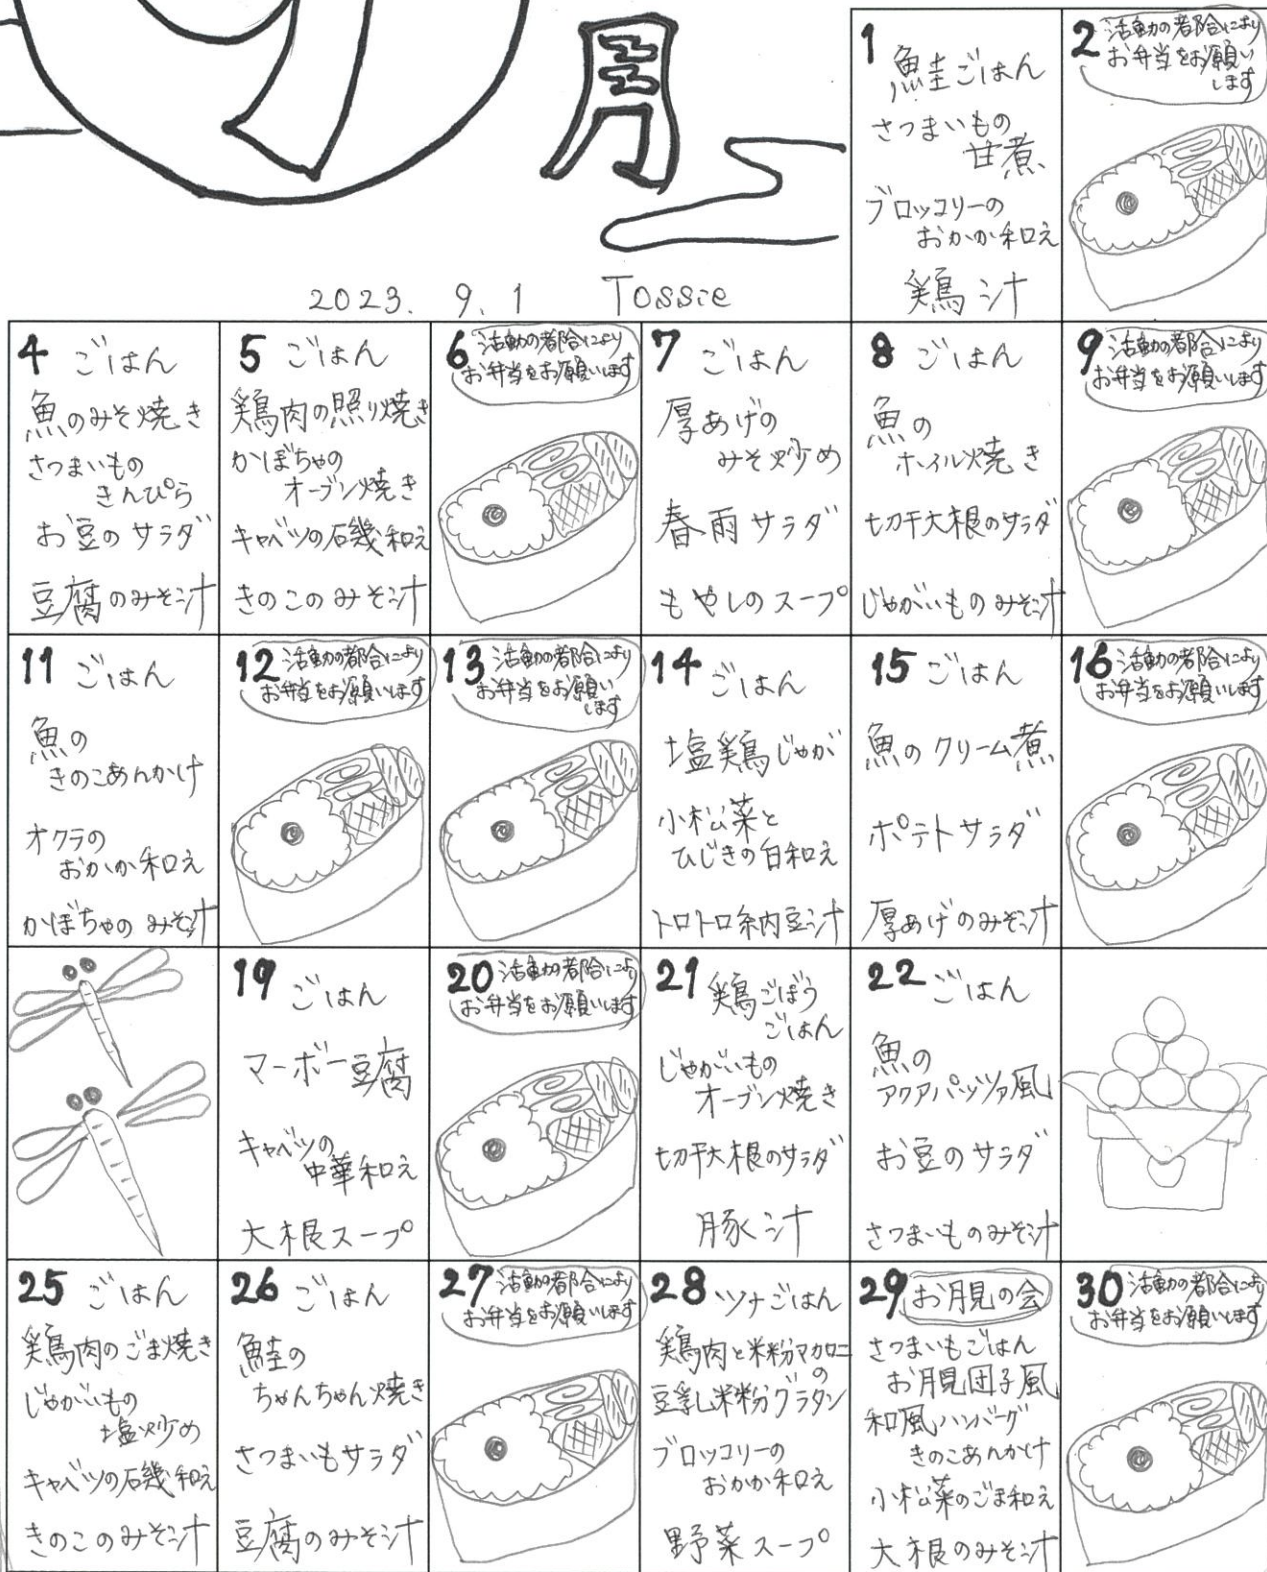 9月
2023. 9. 1 Tossie
1
鮭ごはん
さつまいもの
甘煮
ブロッコリーの
おかか和え
鶏汁
2 活動の都合により
お弁当をお願い
します
4 ごはん
魚のみそ焼き
さつまいもの
きんぴら
お豆のサラダ
豆腐のみそ汁
5 ごはん
鶏肉の照り焼き
かぼちゃの
オーブン焼き
キャベツの磯和え
きのこのみそ汁
6 活動の都合により
お弁当をお願いします
7 ごはん
厚あげの
みそ炒め
春雨サラダ
もやしのスープ
8 ごはん
魚の
ホイル焼き
切干大根のサラダ
じゃがいものみそ汁
9 活動の都合により
お弁当をお願いします
11 ごはん
魚の
きのこあんかけ
オクラの
おかか和え
かぼちゃのみそ汁
12 活動の都合により
お弁当をお願いします
13 活動の都合により
お弁当をお願い
します
14 ごはん
塩鶏じゃが
小松菜と
ひじきの白和え
トロトロ納豆汁
15 ごはん
魚のクリーム煮
ポテトサラダ
厚あげのみそ汁
16 活動の都合により
お弁当をお願いします
19 ごはん
マーボー豆腐
キャベツの
中華和え
大根スープ
20 活動の都合により
お弁当をお願いします
21 鶏ごぼう
ごはん
じゃがいもの
オーブン焼き
切干大根のサラダ
豚汁
22 ごはん
魚の
アクアパッツァ風
お豆のサラダ
さつまいものみそ汁
25 ごはん
鶏肉のごま焼き
じゃがいもの
塩炒め
キャベツの磯和え
きのこのみそ汁
26 ごはん
鮭の
ちゃんちゃん焼き
さつまいもサラダ
豆腐のみそ汁
27 活動の都合により
お弁当をお願いします
28 ツナごはん
鶏肉と米粉マカロニ
の
豆乳米粉グラタン
ブロッコリーの
おかか和え
野菜スープ
29 お月見の会
さつまいもごはん
お月見団子風
和風ハンバーグ
きのこあんかけ
小松菜のごま和え
大根のみそ汁
30 活動の都合により
お弁当をお願いします